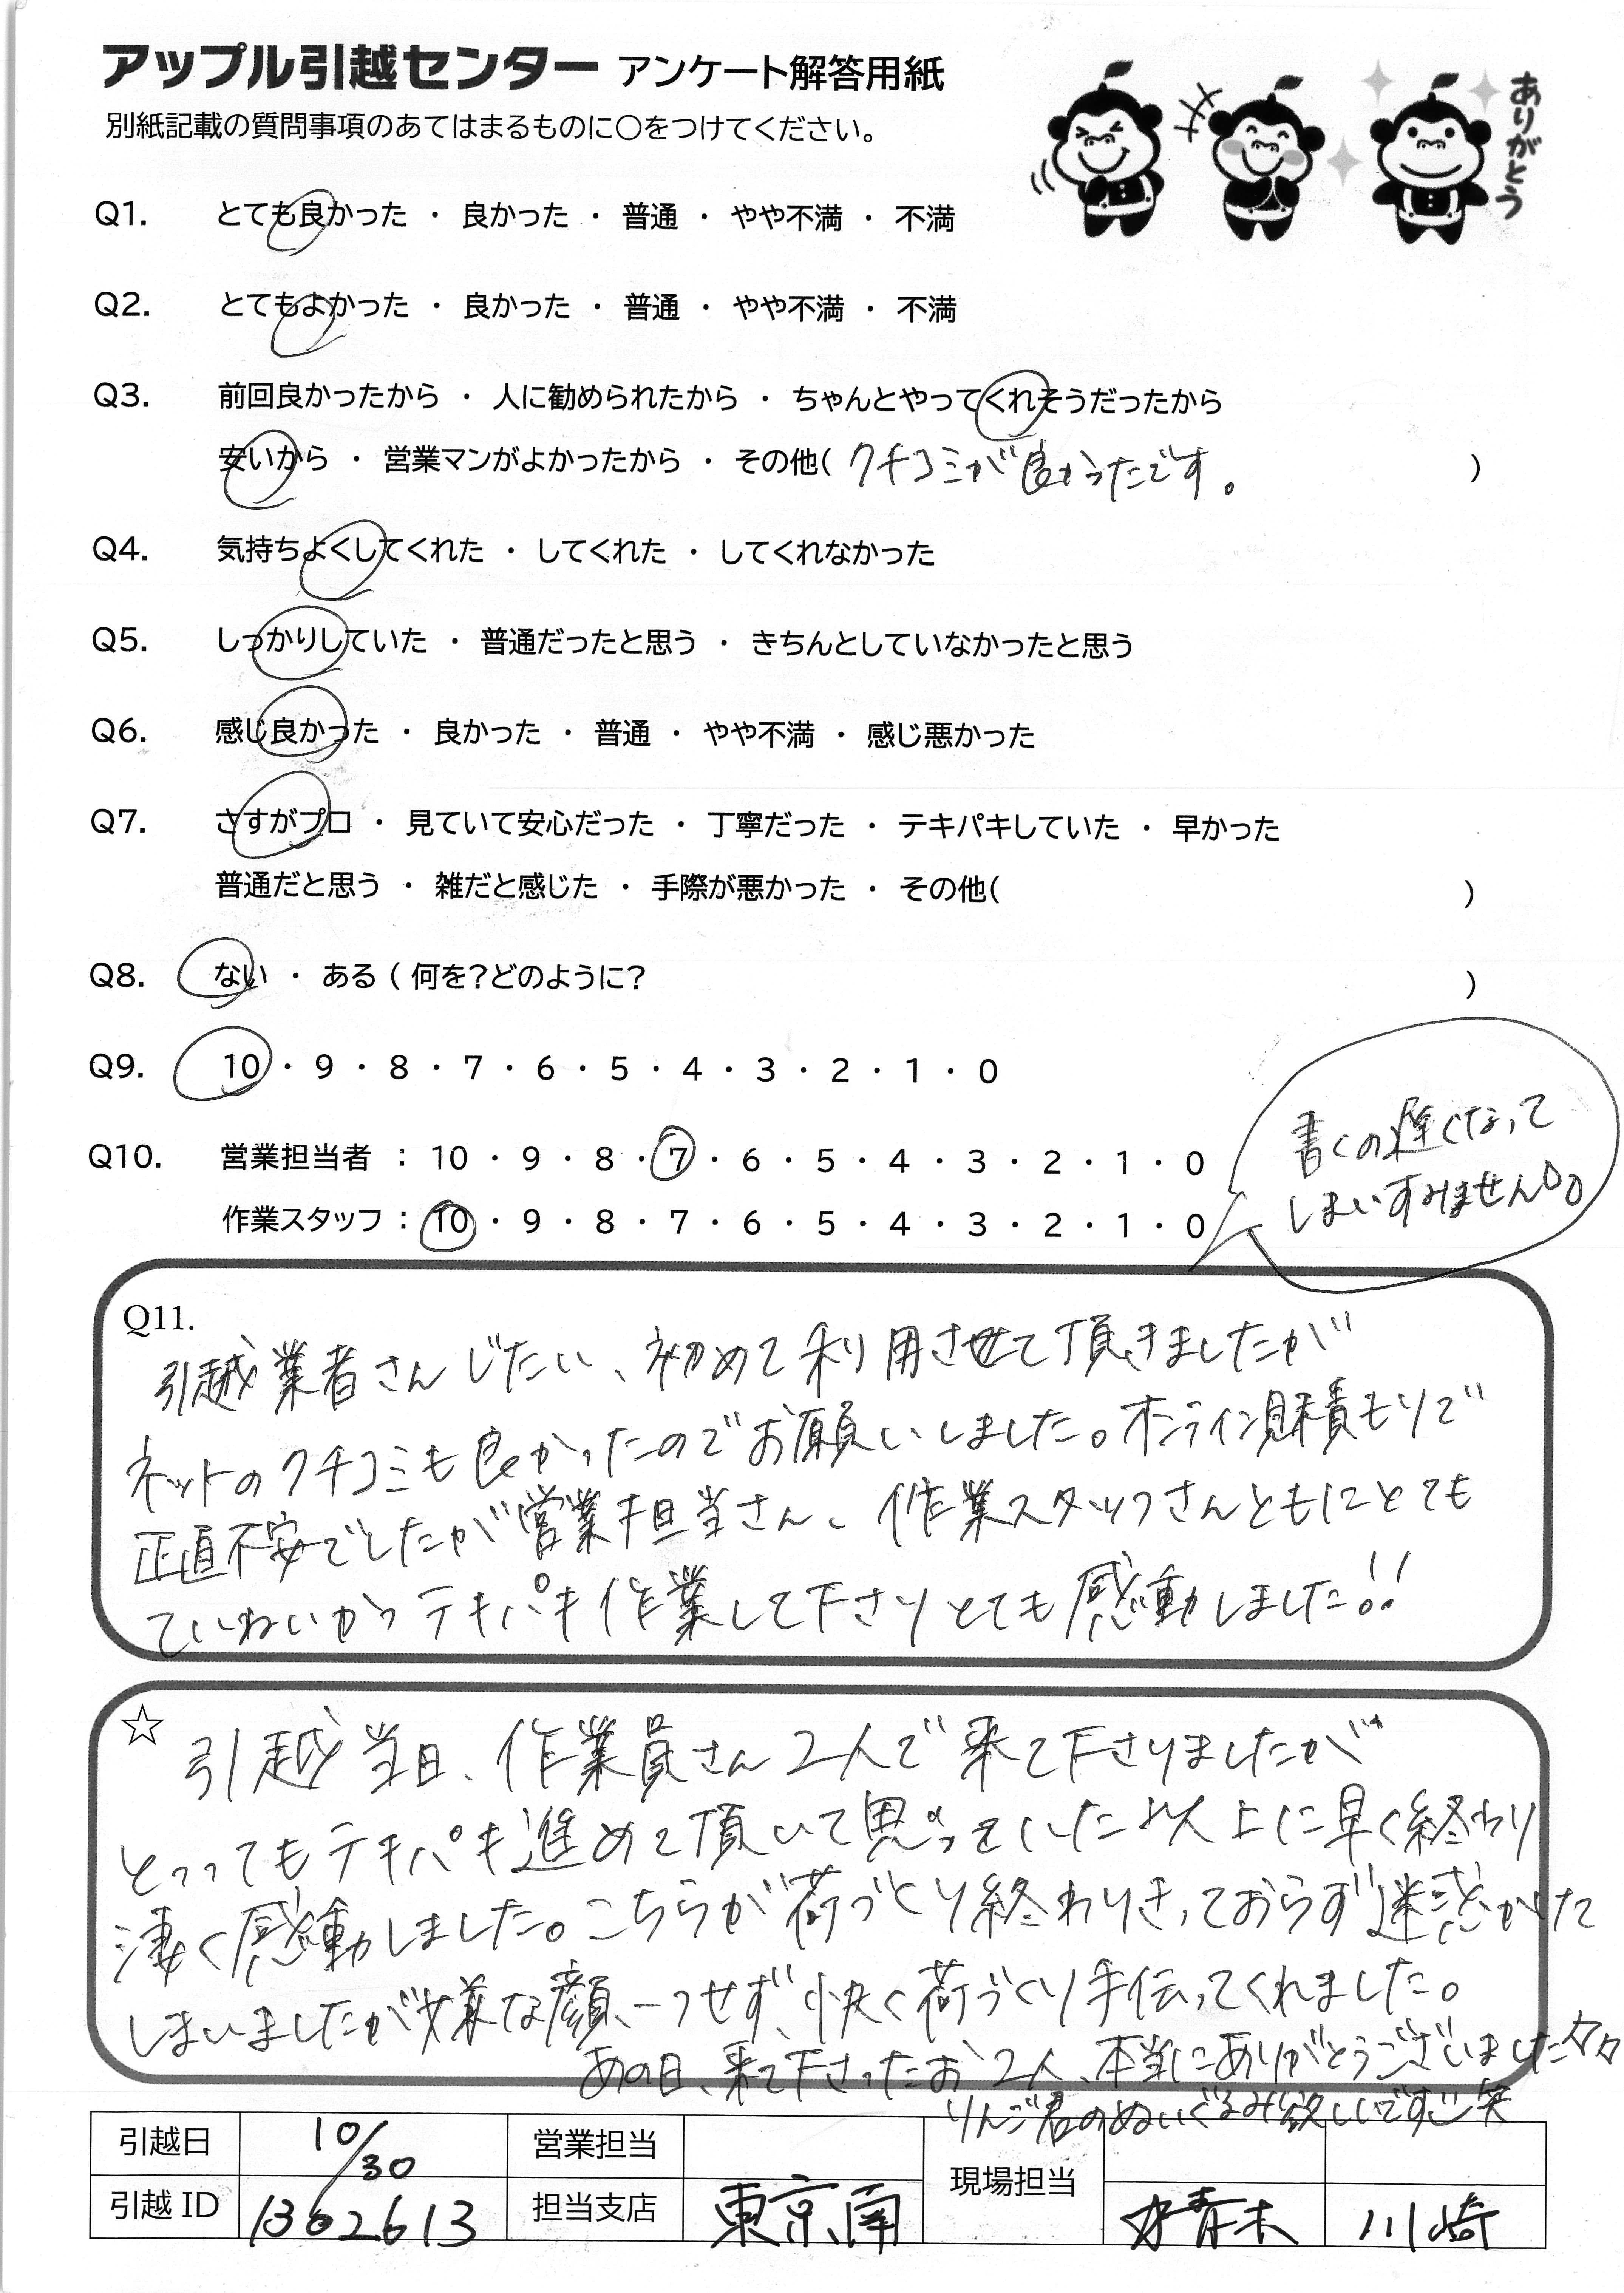 アップル引越センター アンケート解答用紙
別紙記載の質問事項のあてはまるものに○をつけてください。
ありがとう
Q1. とても良かった ・ 良かった ・ 普通 ・ やや不満 ・ 不満
Q2. とてもよかった ・ 良かった ・ 普通 ・ やや不満 ・ 不満
Q3. 前回良かったから ・ 人に勧められたから ・ ちゃんとやってくれそうだったから
安いから ・ 営業マンがよかったから ・ その他( クチコミが良かったです。 )
Q4. 気持ちよくしてくれた ・ してくれた ・ してくれなかった
Q5. しっかりしていた ・ 普通だったと思う ・ きちんとしていなかったと思う
Q6. 感じ良かった ・ 良かった ・ 普通 ・ やや不満 ・ 感じ悪かった
Q7. さすがプロ ・ 見ていて安心だった ・ 丁寧だった ・ テキパキしていた ・ 早かった
普通だと思う ・ 雑だと感じた ・ 手際が悪かった ・ その他( )
Q8. ない ・ ある ( 何を?どのように? )
Q9. 10 ・ 9 ・ 8 ・ 7 ・ 6 ・ 5 ・ 4 ・ 3 ・ 2 ・ 1 ・ 0
Q10. 営業担当者 : 10 ・ 9 ・ 8 ・ 7 ・ 6 ・ 5 ・ 4 ・ 3 ・ 2 ・ 1 ・ 0
作業スタッフ : 10 ・ 9 ・ 8 ・ 7 ・ 6 ・ 5 ・ 4 ・ 3 ・ 2 ・ 1 ・ 0
書くの遅くなって
しまいすみません
Q11.
引越業者さんじたい、初めて利用させて頂きましたが
ネットのクチコミも良かったのでお願いしました。オンライン見積もりで
正直不安でしたが営業担当さん、作業スタッフさんともにとても
ていねいかつテキパキ作業して下さりとても感動しました!!
☆ 引越当日、作業員さん2人で来て下さりましたが
とってもテキパキ進めて頂いて思っていた以上に早く終わり
凄く感動しました。こちらが荷づくり終わりきっておらず迷惑かけた
しまいましたが嫌な顔、一つせず、快く荷づくり手伝ってくれました。
あの日、来て下さったお2人、本当にありがとうございました
りんご君のぬいぐるみ欲しいです 笑
引越日 10/30 営業担当 現場担当
引越ID 1302613 担当支店 東京南 青木 川崎